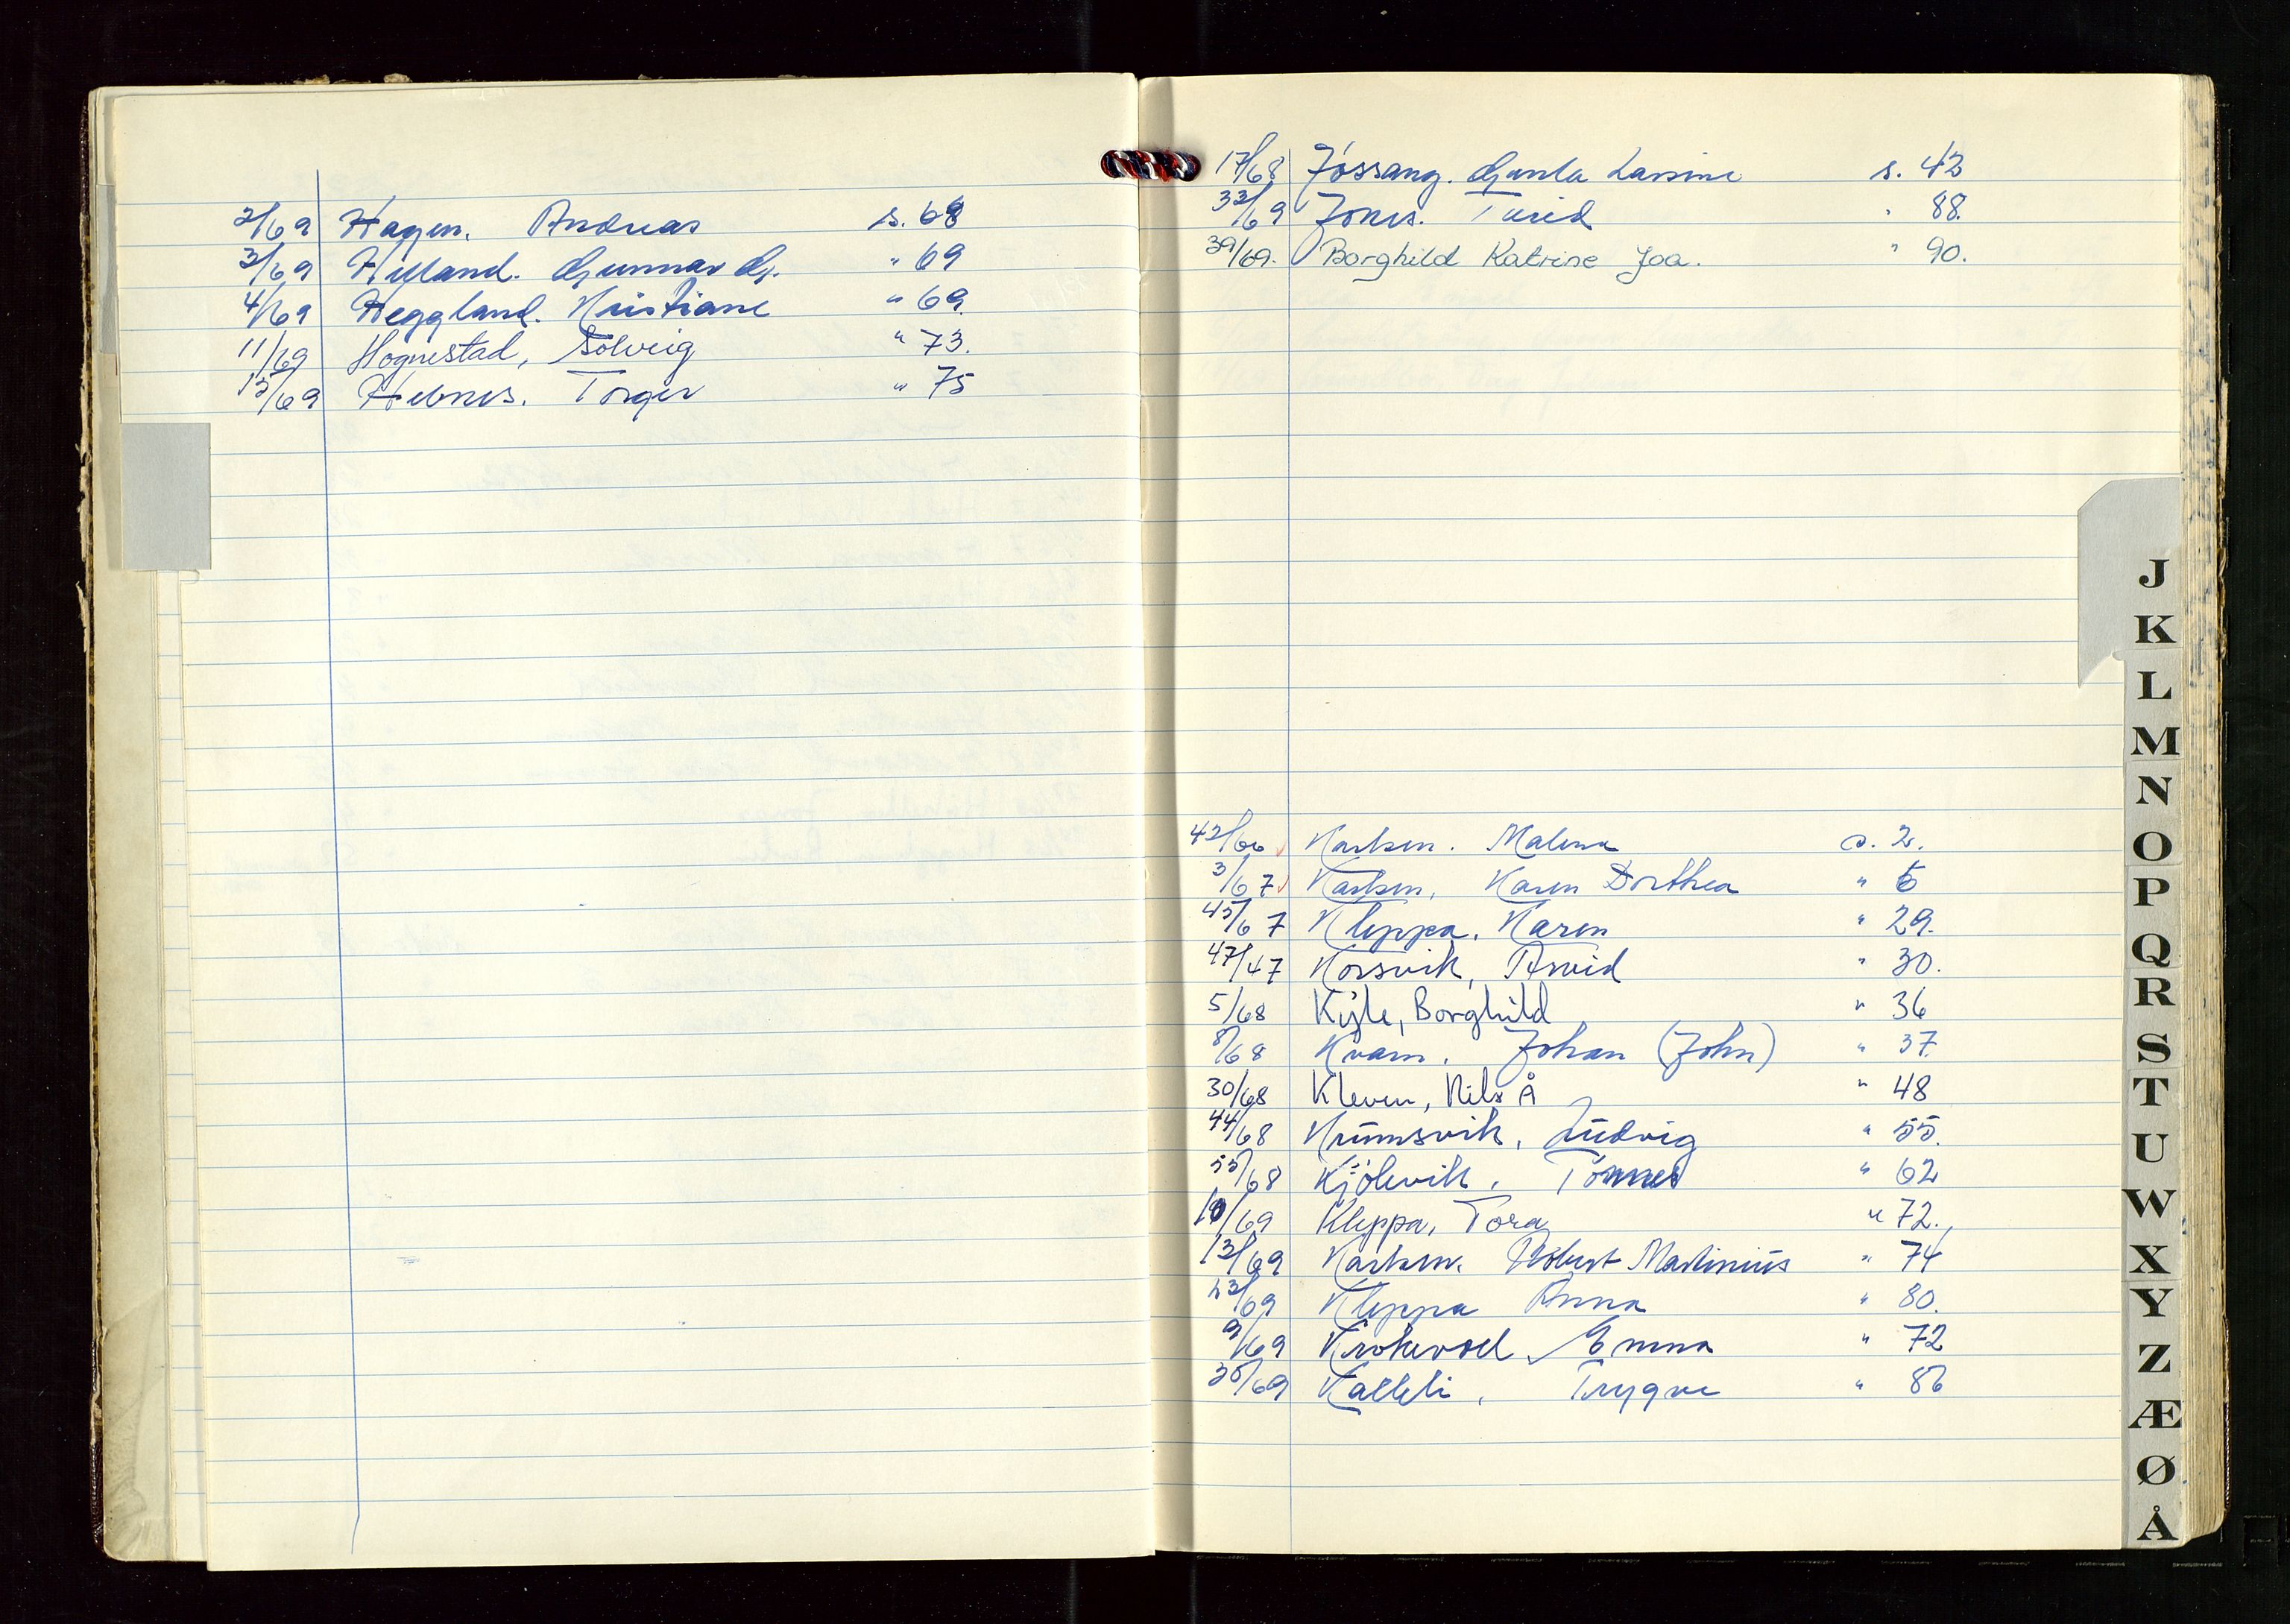 2/69 Hagen. Andreas s. 68
3/69 Helland. Gunnar G. " 69
4/69 Heggland. Kristiane " 69.
11/69 Hognestad, Solveig " 73.
15/69 Hebnes. Torger " 75
17/68 Jøssang. Gunla Lassine s. 42
33/69 Jones. Turid " 88.
39/69. Borghild Katrine Joa. " 90.
42/66 Karlsen. Malena s. 2.
3/67 Karlsen, Karen Dorthea " 5
45/67 Kleppa. Karen " 29.
47/47 Korsvik, Arvid " 30.
5/68 Kyle, Borghild " 36
8/68 Kvam. Johan (John) " 37
30/68 Kleven, Nils Å " 48
44/68 Krumsvik. Ludvig " 55.
55/68 Kjölevik. Tönnes " 62
10/69 Kleppa, Tora " 72.
13/69 Karlsen. Robert Martinius " 74
23/69 Kleppa Anna " 80.
9/69 Krokevoll, Emma " 72
/69 Kalleli, Trygve " 86
J
K
L
M
N
O
P
Q
R
S
T
U
W
X
Y
Z
Æ
Ø
Å